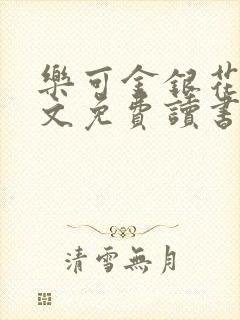 樂可金銀花
文免費讀書
清雪無月